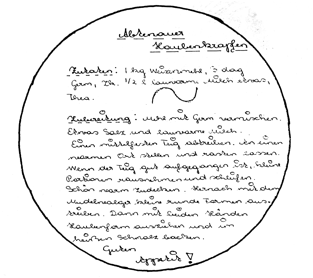 Abtenauer
Haubenkrapfen
Zutaten: 1 kg Weizenmehl, 3 dag
Germ, Ei, 1/2 l lauwarme Milch etwas,
Zubereitung: Mehl mit Germ vermischen.
Etwas Salz und lauwarme Milch.
Einen mittelfesten Teig abtreiben. An einen
warmen Ort stellen und rasten lassen.
Wenn der Teig gut aufgegangen ist, kleine
Portionen rausnehmen und schleifen.
Schön warm zudecken. Hernach mit dem
Nudelwalger kleine runde Formen aus-
treiben. Dann mit beiden Händen
Haubenform ausziehen und im
heißen Schmalz backen.
Guten
Appetit!